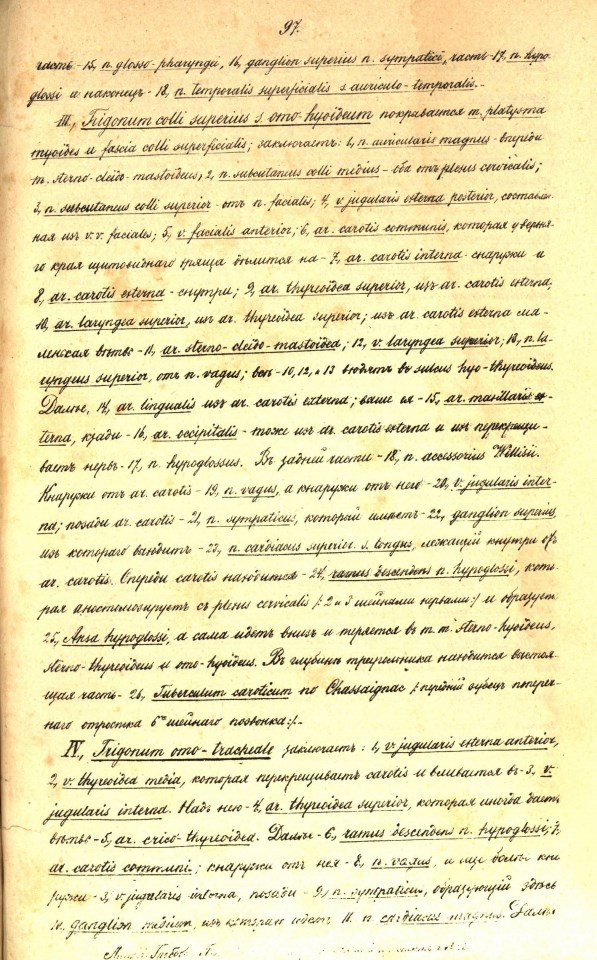 97.
часть - 15, n. glosso-pharyngei, 16, ganglion superius n. sympatici, часть 17, n. hypo-
glossi и наконецъ - 18, n. temporalis superficialis s. auriculo-temporalis.-
III, Trigonum colli superius s. omo-hyoideum покрывается m. platysma
myoides и fascia colli superficialis; заключаетъ: 1, n. auricularis magnus - впереди
m. sterno-cleido-mastoideus, 2, n. subcutaneus colli medius - оба отъ plexus cervicalis;
3, n. subcutaneus colli superior - отъ n. facialis; 4, v. jugularis externa posterior, составлен-
ная изъ v.v. faciales; 5, v. facialis anterior; 6, ar. carotis communis, которая у верхня-
го края щитовиднаго хряща дѣлится на - 7, ar. carotis interna - снаружи и
8, ar. carotis externa - снутри; 9, ar. thyreoidea superior, изъ ar. carotis externa,
10, ar. laryngea superior, изъ ar. thyreoidea superior; изъ ar. carotis externa ма-
ленькая вѣтвь - 11, ar. sterno-cleido-mastoidea; 12, v. laryngea superior; 13, n. la-
ryngeus superior, отъ n. vagus; всѣ - 10, 12, и 13 входятъ въ sulcus hyo-thyreoideus.
Далѣе, 14, ar. lingualis изъ ar. carotis externa; выше ея - 15, ar. maxillaris ex-
terna, кзади - 16, ar. occipitalis - тоже изъ ar. carotis externa и ихъ перекрещи-
ваетъ нервъ - 17, n. hypoglossus. Въ задней части - 18, n. accessorius Willisii.
Кнаружи отъ ar. carotis - 19, n. vagus, а кнаружи отъ него - 20, v. jugularis inter-
na; позади ar. carotis - 21, n. sympaticus, который имѣетъ - 22, ganglion superius,
изъ котораго выходитъ - 23, n. cardiacus superior s. longus, лежащій кнутри отъ
ar. carotis. Спереди carotis находится - 24, ramus descendens n. hypoglossi, кото-
рая анастомозируетъ съ plexus cervicalis /: 2 и 3 шейными нервами :/ и образуетъ
25, Ansa hypoglossi, а сама идетъ внизъ и теряется въ m. m. sterno-hyoideus,
sterno-thyreoideus и omo-hyoideus. Въ глубинѣ треугольника находится выстоя-
щая часть - 26, Tuberculum caroticum по Chassaignac /: передній бугокъ попереч-
наго отростка 6го шейнаго позвонка :/.-
IV, Trigonum omo-tracheale заключаетъ: 1, v. jugularis externa anterior,
2, v. thyreoidea media, которая перекрещиваетъ carotis и вливается въ - 3, v.
jugularis interna. Надъ нею - 4, ar. thyreoidea superior, которая иногда даетъ
вѣтвь - 5, ar. crico-thyreoidea. Далѣе - 6, ramus descendens n. hypoglossi; 7,
ar. carotis communi; кнаружи отъ нея - 8, n. vagus, и еще болѣе кна
ружи - 3, v. jugularis interna, позади - 9, n. sympaticus, образующій здѣсь
10. ganglion medium, изъ котораго идетъ 11. n. cardiacus magnus. Далѣе